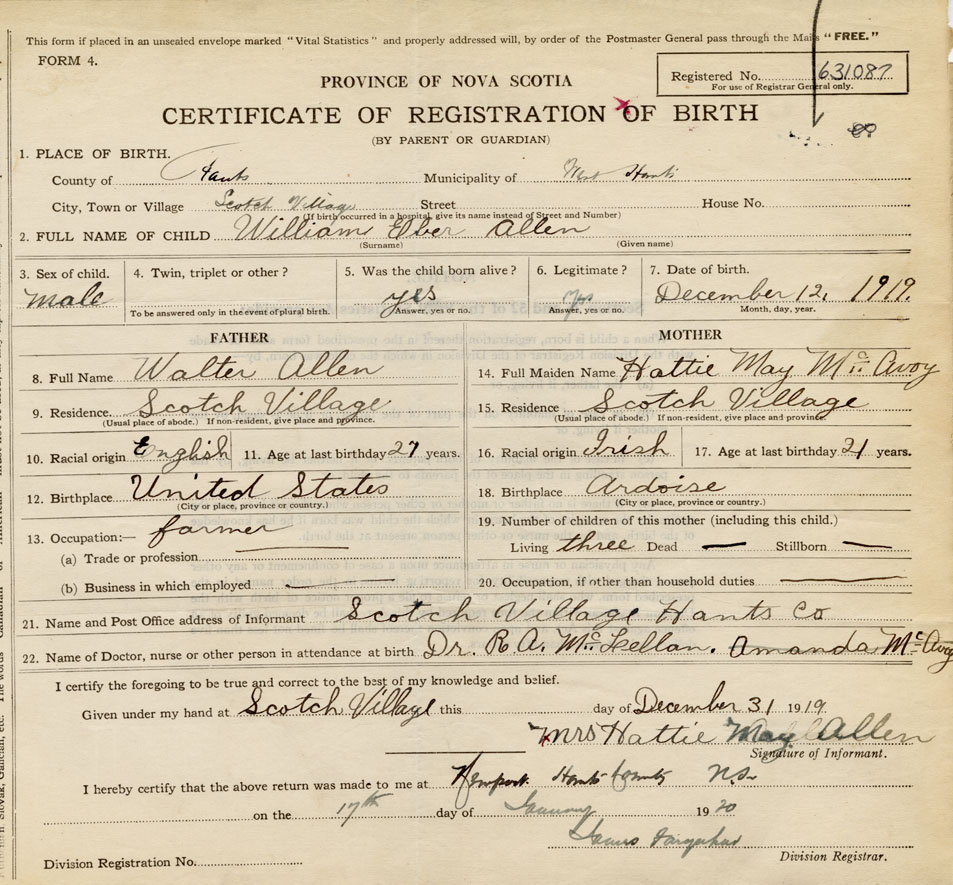 This form if placed in an unsealed envelope marked "Vital Statistics" and properly addressed will, by order of the Postmaster General pass through the Mails "FREE."
FORM 4.
Registered No. 631087
For use of Registrar General only.
PROVINCE OF NOVA SCOTIA
CERTIFICATE OF REGISTRATION OF BIRTH
(BY PARENT OR GUARDIAN)
1. PLACE OF BIRTH.
County of Hants Municipality of West Hants
City, Town or Village Scotch Village Street House No.
(If birth occurred in a hospital, give its name instead of Street and Number)
2. FULL NAME OF CHILD William Elber Allen
(Surname) (Given name)
3. Sex of child. 4. Twin, triplet or other? 5. Was the child born alive? 6. Legitimate? 7. Date of birth.
male yes yes December 12, 1919.
To be answered only in the event of plural birth. Answer, yes or no. Answer, yes or no. Month, day, year.
FATHER MOTHER
8. Full Name Walter Allen 14. Full Maiden Name Hattie May McAvoy
9. Residence Scotch Village 15. Residence Scotch Village
(Usual place of abode.) If non-resident, give place and province. (Usual place of abode.) If non-resident, give place and province.
10. Racial origin English 11. Age at last birthday 27 years. 16. Racial origin Irish 17. Age at last birthday 21 years.
12. Birthplace United States 18. Birthplace Ardoise
(City or place, province or country.) (City or place, province or country.)
13. Occupation:— farmer 19. Number of children of this mother (including this child.)
(a) Trade or profession Living three Dead — Stillborn —
(b) Business in which employed 20. Occupation, if other than household duties
21. Name and Post Office address of Informant Scotch Village Hants Co
22. Name of Doctor, nurse or other person in attendance at birth Dr. R.A. McLellan. Amanda McAvoy
I certify the foregoing to be true and correct to the best of my knowledge and belief.
Given under my hand at Scotch Village this day of December 31 1919.
Mrs Hattie May Allen
Signature of Informant.
I hereby certify that the above return was made to me at Newport Hants County N.S.
on the 17th day of January 1920
James
Division Registrar.
Division Registration No.